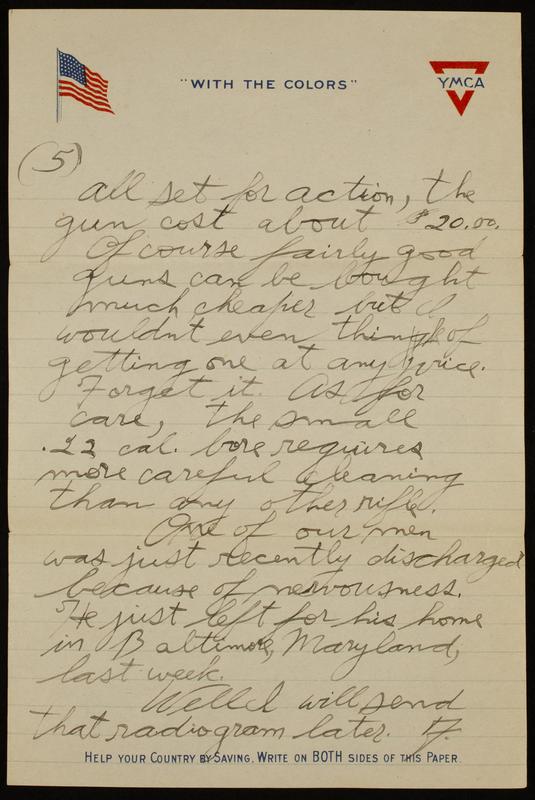 "WITH THE COLORS"
YMCA
(5)
all set for action, the
gun cost about $20.00.
Of course fairly good
guns can be bought
much cheaper but I
wouldnt even think of
getting one at any price.
Forget it. As for
care, the small
.22 cal. bore requires
more careful cleaning
than any other rifle.
One of our men
was just recently discharged
because of nervousness.
He just left for his home
in Baltimore, Maryland,
last week.
will send
that radiogram later. If
HELP YOUR COUNTRY BY SAVING. WRITE ON BOTH SIDES OF THIS PAPER.